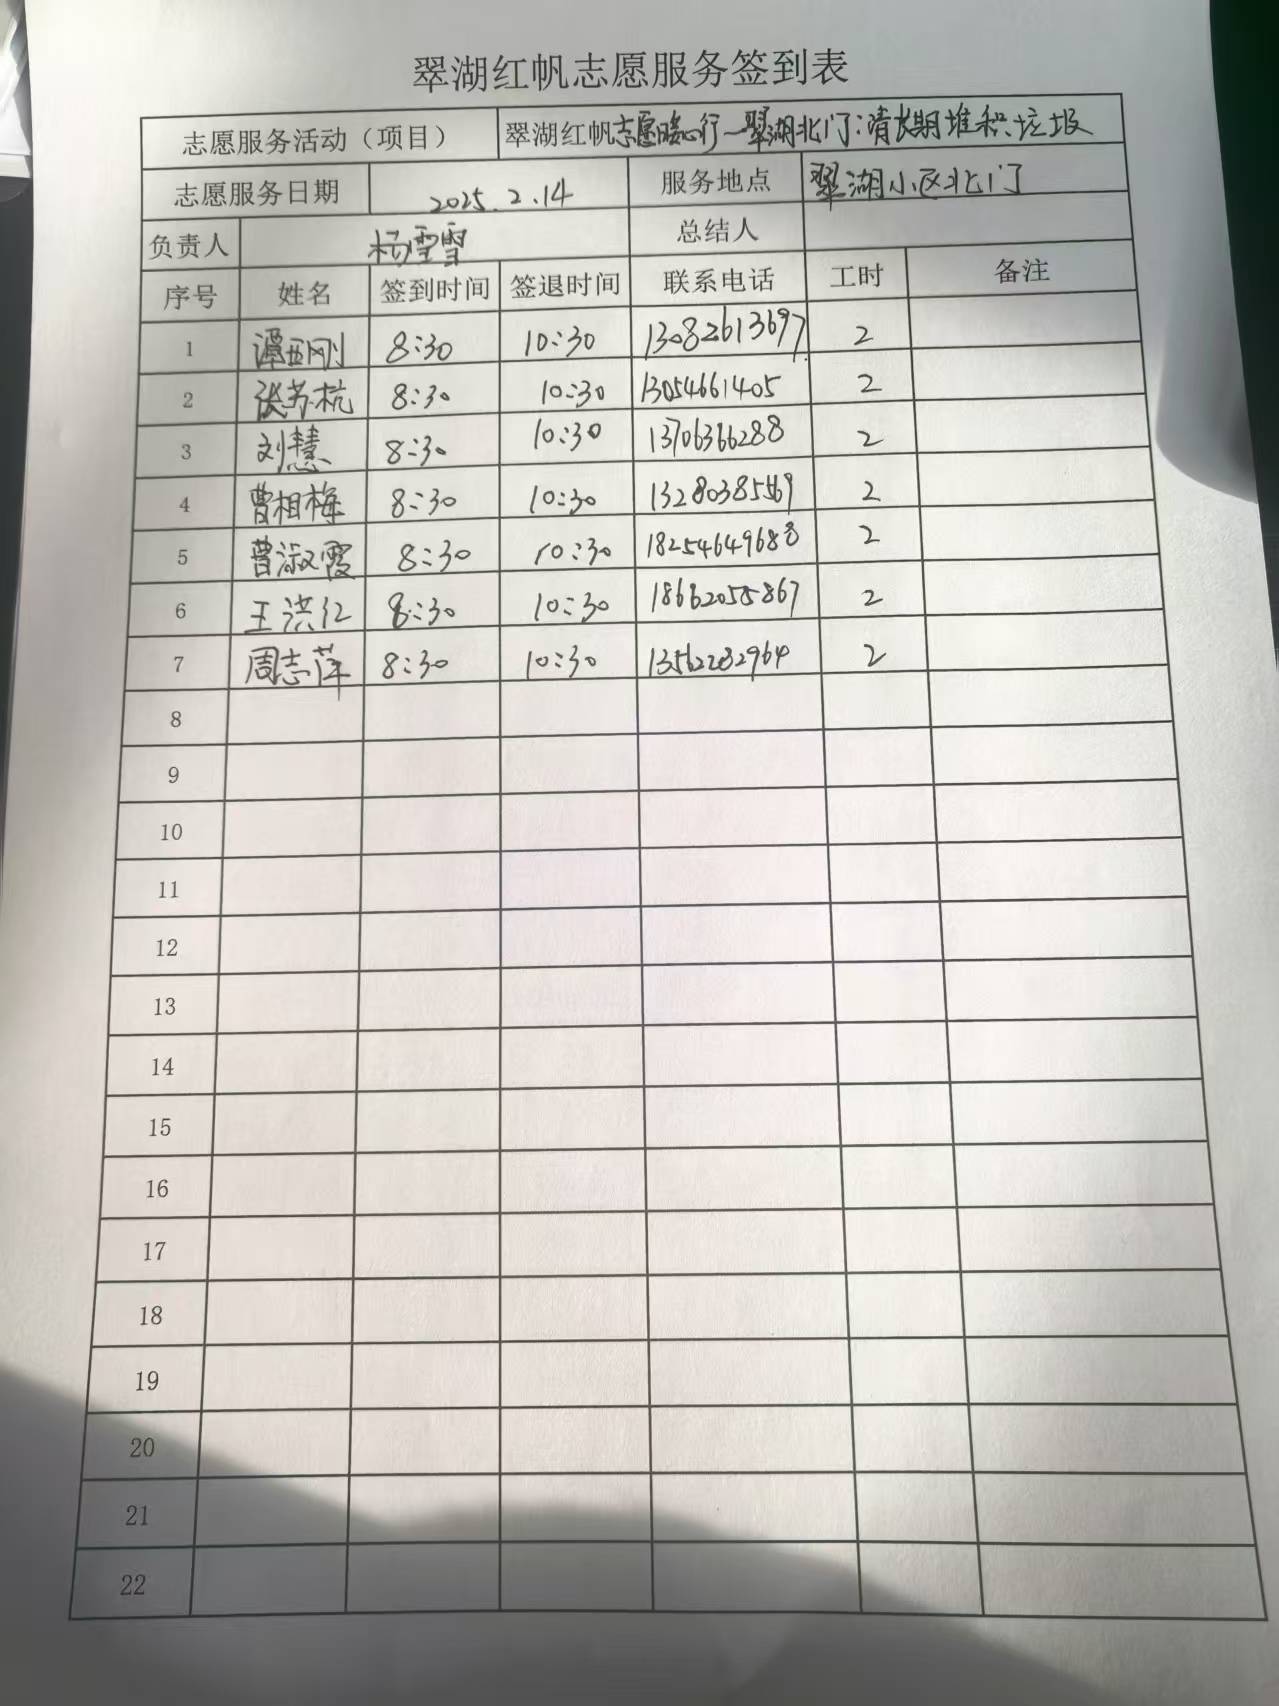 翠湖红帆志愿服务签到表
志愿服务活动（项目） 翠湖红帆志愿暖心行—翠湖北门:清长期堆积垃圾
志愿服务日期 2025.2.14 服务地点 翠湖小区北门
负责人 杨雪雪 总结人
序号 姓名 签到时间 签退时间 联系电话 工时 备注
1 谭西刚 8:30 10:30 13082613697 2
2 张苏杭 8:30 10:30 13054661405 2
3 刘慧 8:30 10:30 13706366288 2
4 曹相梅 8:30 10:30 13280385569 2
5 曹淑霞 8:30 10:30 18254649688 2
6 王洪红 8:30 10:30 18662055867 2
7 周志萍 8:30 10:30 2
8
9
10
11
12
13
14
15
16
17
18
19
20
21
22